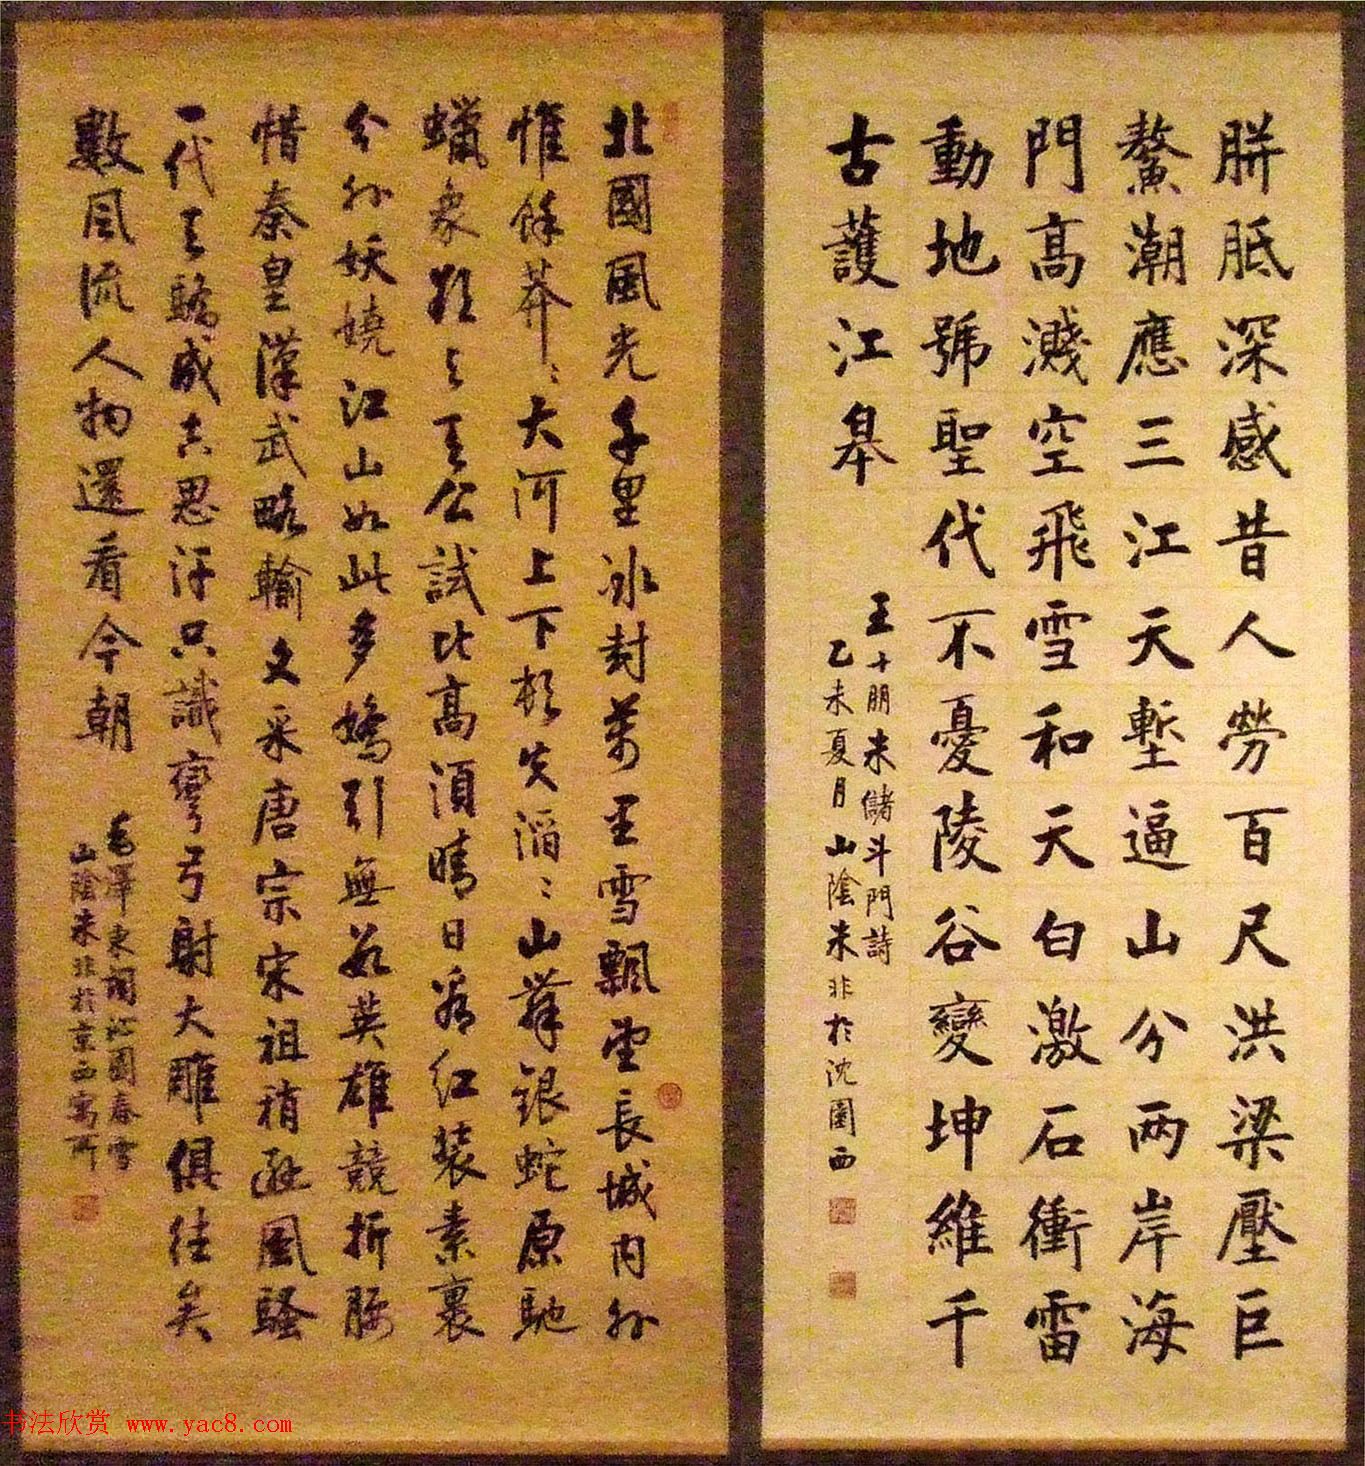 胼胝深感昔人勞百尺洪梁壓巨
鰲潮應三江天塹逼山分兩岸海
門高濺空飛雪和天白激石衝雷
動地號聖代不憂陵谷變坤維千
古護江皋
王十朋朱儲斗門詩
乙未夏月山陰朱非於沈園西
北國風光千里冰封萬里雪飄望長城內外
惟餘莽〻大河上下頓失滔〻山舞銀蛇原馳
蠟象欲與天公試比高須晴日看紅裝素裹
分外妖嬈江山如此多嬌引無數英雄競折腰
惜秦皇漢武略輸文采唐宗宋祖稍遜風騷
一代天驕成吉思汗只識彎弓射大雕俱往矣
數風流人物還看今朝
毛澤東詞沁園春雪
山陰朱非於京西寓所
书法欣赏 www.yac8.com